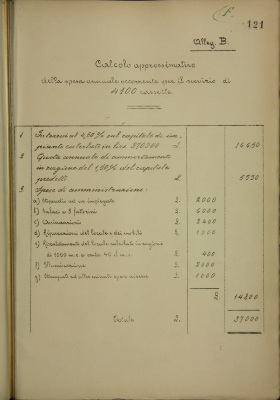 F. 121
Alleg. B.
Calcolo approssimativo
della spesa annuale occorrente per il servizio di
4100 cassette
1 Interessi al 4,50% sul capitale di im-
pianti calcolati in lire 370,000 £. 16650
2 Quota annuale di ammortamento
in ragione del 1,50% del capitale
predetto £. 5550
3 Spese di amministrazione:
a) Stipendio ad un impiegato £. 2000
b) Salari a 5 fattorini £. 6000
c) £. 2400
d) Riparazioni del locale e dei mobili £. 1000
e) Riscaldamento del locale calcolato in ragione
di 1000 m.c. a cent. 40 il m.c. £. 400
f) Illuminazione £. 2100
g) Stampati ed altre minute spese £. 1000
£. 14800
Totale £. 37000